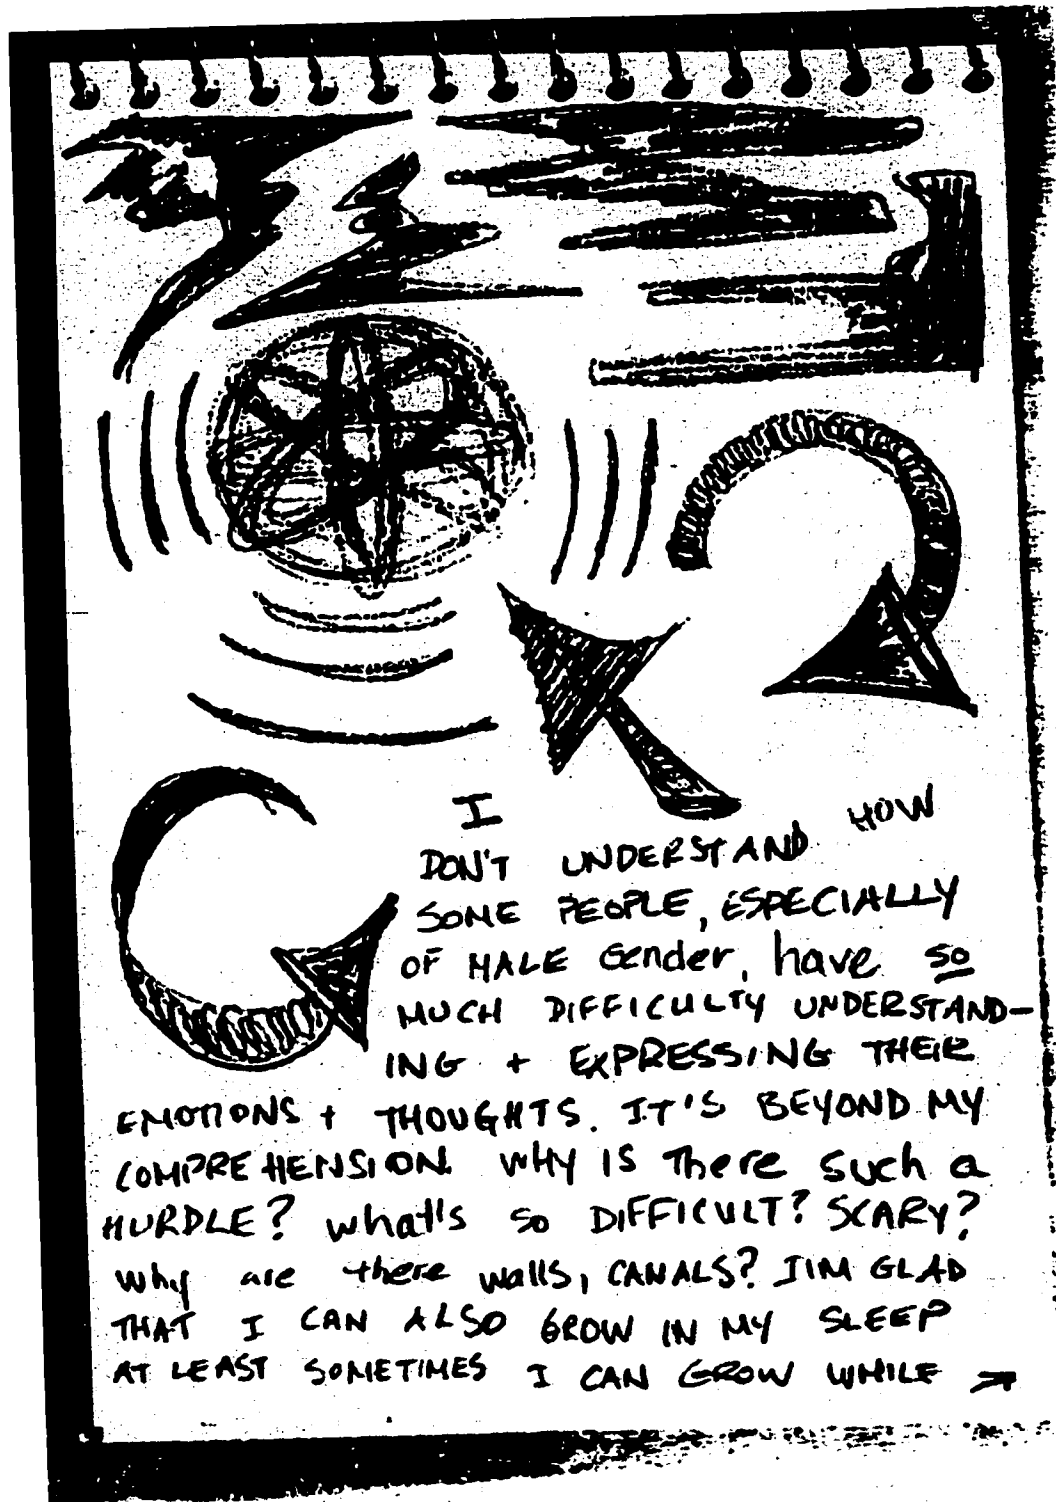 I
DON'T UNDERSTAND HOW
SOME PEOPLE, ESPECIALLY
OF MALE Gender, have so
MUCH DIFFICULTY UNDERSTAND-
ING + EXPRESSING THEIR
EMOTIONS + THOUGHTS. IT'S BEYOND MY
COMPREHENSION. WHY IS There Such a
HURDLE? what's so DIFFICULT? SCARY?
Why are there walls, CANALS? I'M GLAD
THAT I CAN ALSO GROW IN MY SLEEP
AT LEAST SOMETIMES I CAN GROW WHILE →